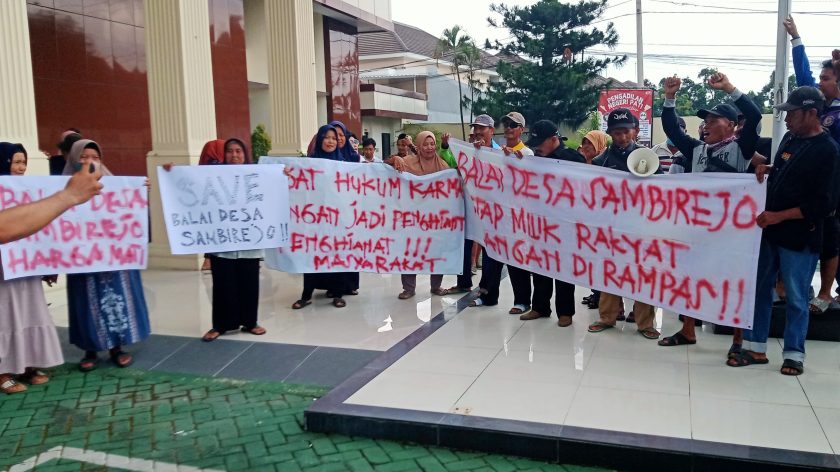 BALAI DESA
SAMBIREJO
HARGA MATI
SAVE
BALAI DESA
SAMBIREJO !!
HUKUM KARMA
JANGAN JADI PENGHIANAT
PENGHIANAT !!!
MASYARAKAT
BALAI DESA SAMBIREJO
TTAP MIUK RAKYAT
JANGAN DI RAMPAS!!
PENGADILAN
NEGERI PATI